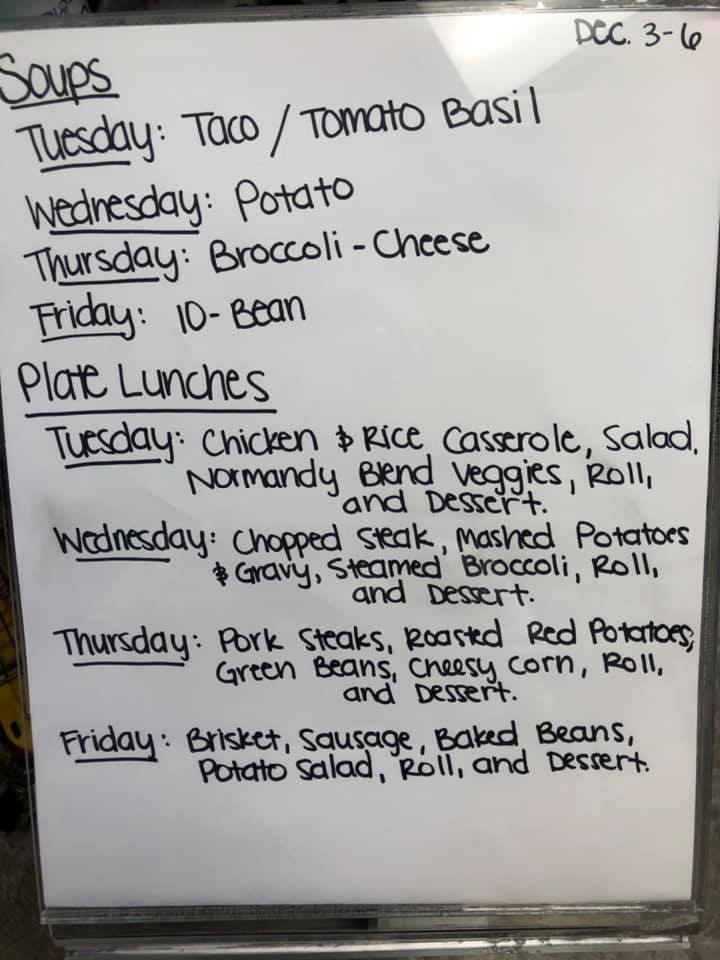 DEC. 3-6
Soups
Tuesday: Taco / Tomato Basil
Wednesday: Potato
Thursday: Broccoli-Cheese
Friday: 10-Bean
Plate Lunches
Tuesday: Chicken & Rice Casserole, Salad,
Normandy Blend Veggies, Roll,
and Dessert.
Wednesday: Chopped Steak, Mashed Potatoes
& Gravy, Steamed Broccoli, Roll,
and Dessert.
Thursday: Pork Steaks, Roasted Red Potatoes,
Green Beans, Cheesy Corn, Roll,
and Dessert.
Friday: Brisket, Sausage, Baked Beans,
Potato Salad, Roll, and Dessert.